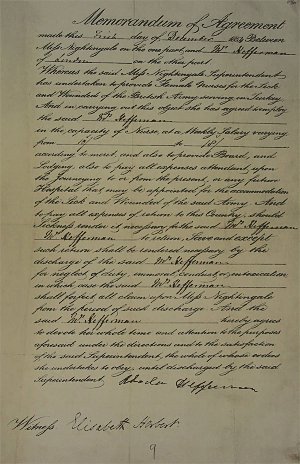 Memorandum of Agreement
made this First day of December 1854 Between
Miss Nightingale on the one part, and Mrs Hefferman
of London on the other part
Whereas the said Miss Nightingale, Superintendent
has undertaken to provide Female Nurses for the Sick
and Wounded of the British Army serving in Turkey
And in carrying out this object she has agreed to employ
the said Mrs Hefferman
in the capacity of a Nurse, at a Weekly Salary varying
from 10/ to 18/
according to merit, and also to provide Board, and
Lodging, also to pay all expenses attendant upon
the Journeying to or from the present, or any future
Hospital that may be appointed for the accommodation
of the Sick and Wounded of the said Army And
to pay all expenses of return to this Country should
Sickness render it necessary for the said Mrs Hefferman
Mrs Hefferman to return, Save and except
such return shall be rendered necessary by the
discharge of the said Mrs Hefferman
for neglect of duty, immoral conduct, or intoxication
in which case the said Mrs Hefferman
shall forfeit all claim upon Miss Nightingale
from the period of such discharge And the
said Mrs Hefferman hereby agrees
to devote her whole time and attention to the purposes
aforesaid under the directions and to the satisfaction
of the said Superintendent, the whole of whose orders
she undertakes to obey, until discharged by the said
Superintendent. Hefferman
Witness Elizabeth Herbert
9